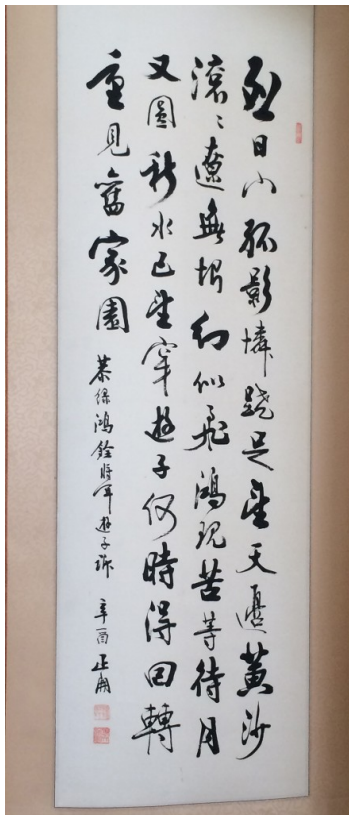 烈日下孤影憐蹺足望天邊黃沙
滾〻遼無垠幻似飛鴻現苦等待月
又圓秋水已望穿遊子何時得回轉
重見舊家園
恭錄鴻銓將軍遊子吟 辛酉 正